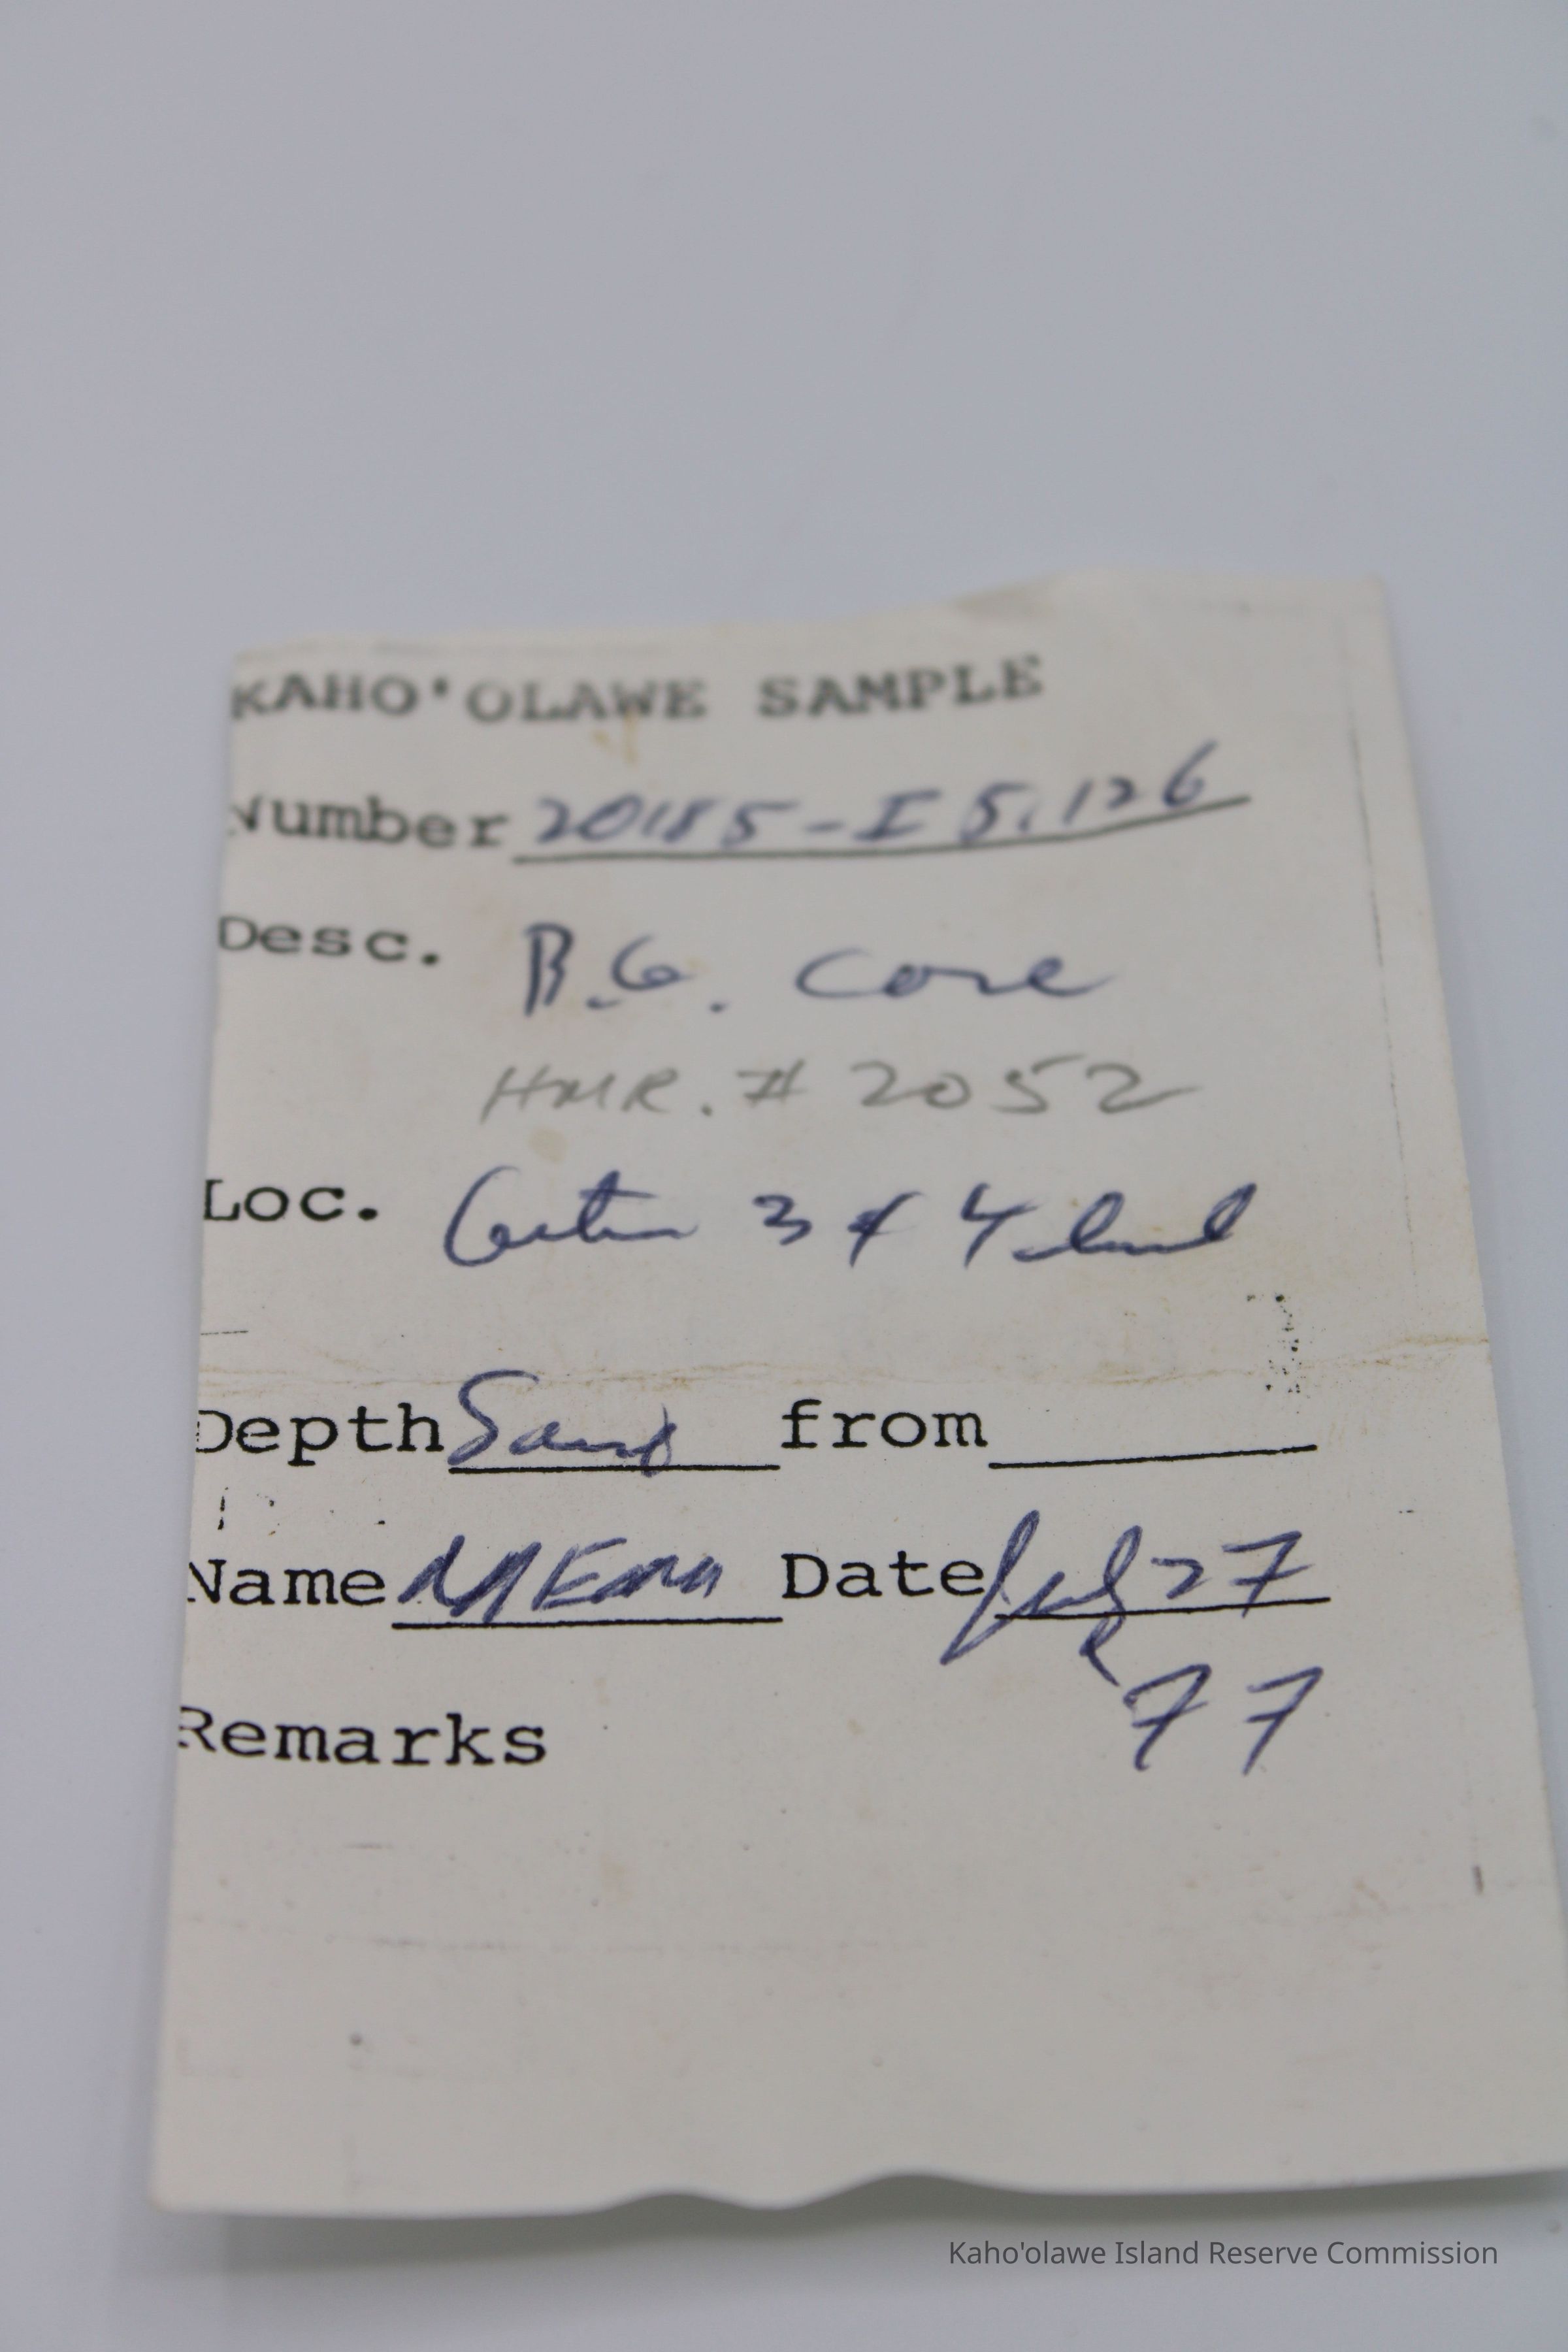 KAHO'OLAWE SAMPLE
Number 20185-I 5.126
Desc. B.G. Core
HMR. # 2052
Loc. 3 & 4
Depth from
Name Date July 27
77
Remarks
Kaho'olawe Island Reserve Commission